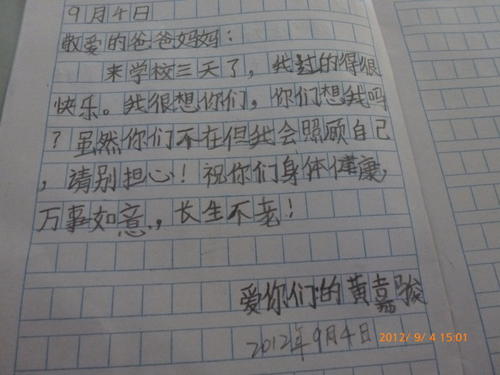 9月4日
敬爱的爸爸妈妈：
来学校三天了，我过的得很
快乐。我很想你们，你们想我吗
？虽然你们不在但我会照顾自己
，请别担心！祝你们身体健康，
万事如意，长生不老！
爱你们的黄嘉骏
2012年9月4日
2012/ 9/ 4 15:01